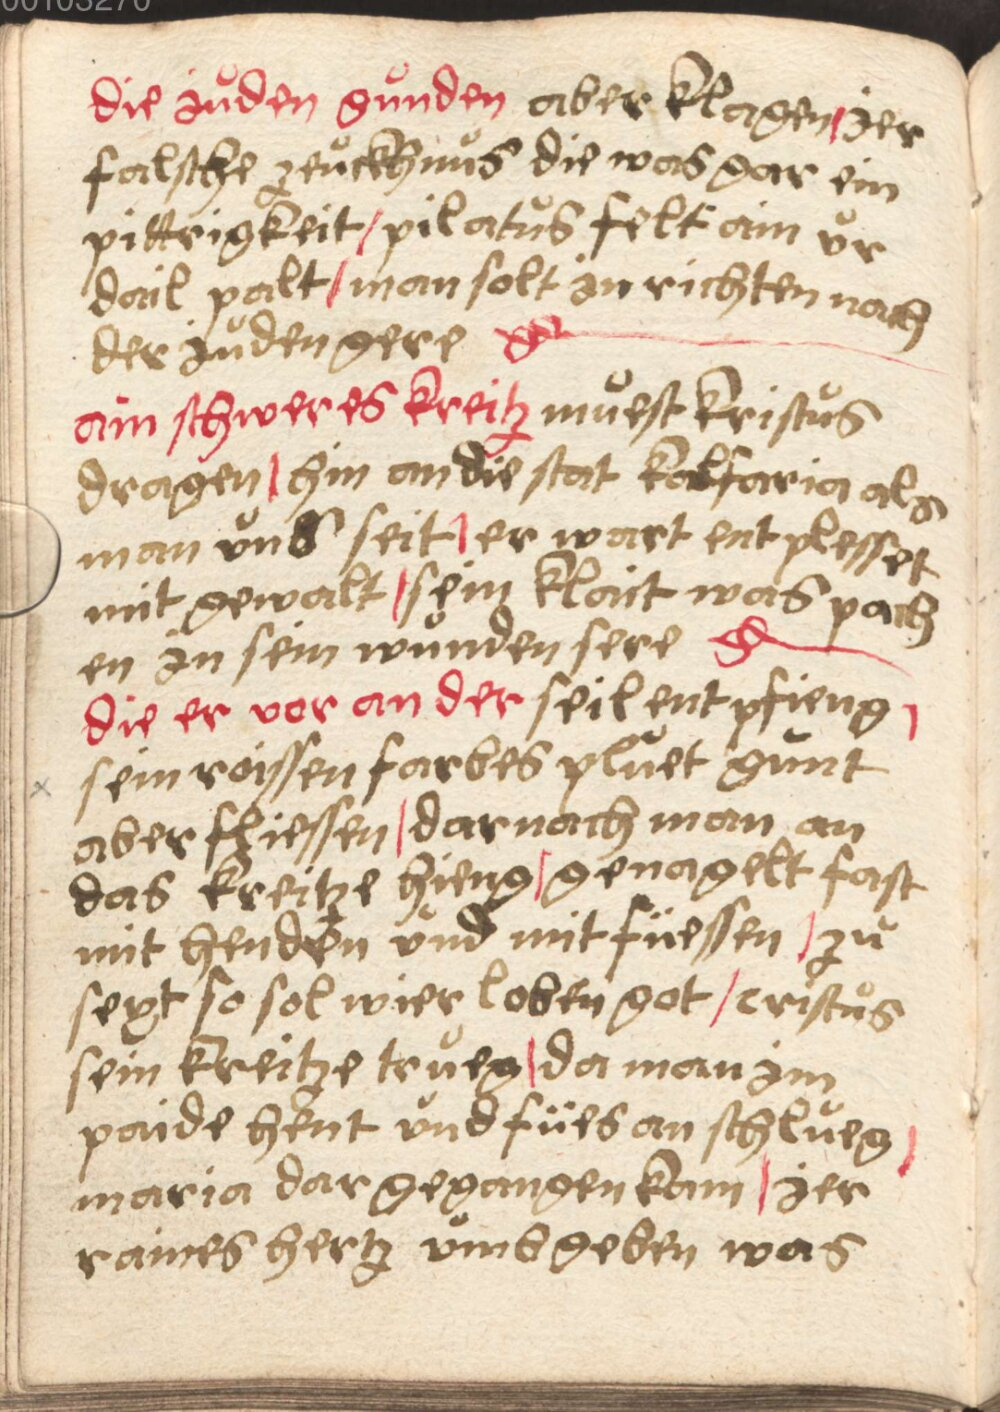 00103270
die juden gunden aber klagen / jer
falsche zeuckhnus die was gar ein
pittrigkeit / pilatus felt ain ur
dail palt / man solt jn richten nach
der juden gere
ain schweres kreitz muest kristus
dragen / hin an die stat kalfaria als
man uns seit / er wart entplesset
mit gewalt / sein klait was pach
en jn sein wunden sere
die er vor an der seil entpfieng /
sein roissen farbes pluet gunt
aber fliessen / darnach man an
das kreitze hieng / genagelt fast
mit henden und mit füessen / zu
sext so sol wier loben got / cristus
sein kreitze trueg / da man jm
paide hent und fües an schlueg /
maria dar gegangen kam / jer
raines hertz umbgeben was